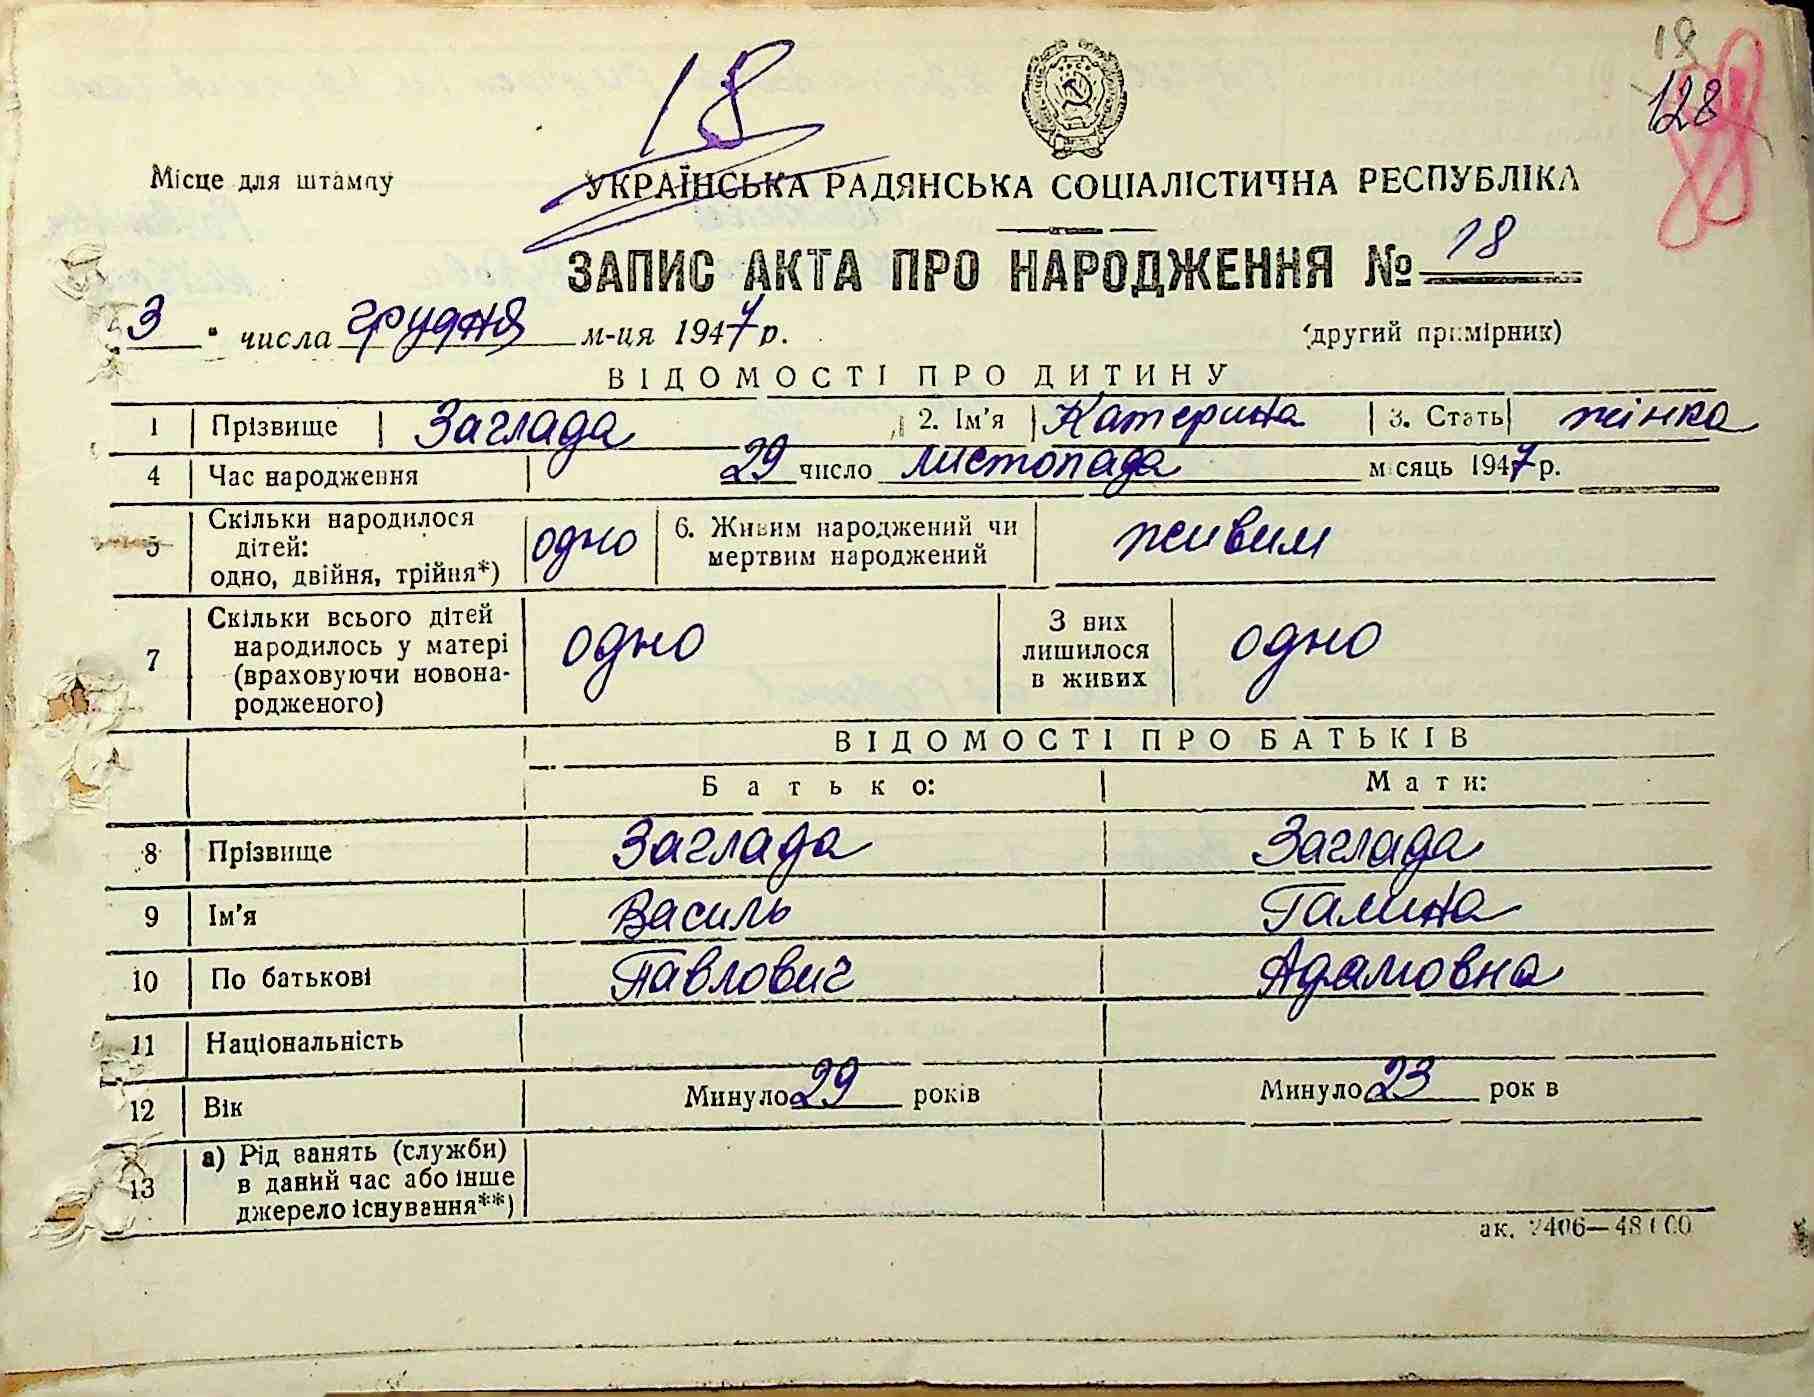 18
18
128
Місце для штампу
УКРАЇНСЬКА РАДЯНСЬКА СОЦІАЛІСТИЧНА РЕСПУБЛІКА
ЗАПИС АКТА ПРО НАРОДЖЕННЯ № 18
3 " числа грудня м-ця 1947 р.
(другий примірник)
ВІДОМОСТІ ПРО ДИТИНУ
1 Прізвище Заглада 2. Ім'я Катерина 3. Стать жінка
4 Час народження 29 число листопада місяць 1947 р.
5 Скільки народилося дітей: одно, двійня, трійня*) одно 6. Живим народжений чи мертвим народжений живим
7 Скільки всього дітей народилось у матері (враховуючи новонародженого) одно З них лишилося в живих одно
ВІДОМОСТІ ПРО БАТЬКІВ
Батько: Мати:
8 Прізвище Заглада Заглада
9 Ім'я Василь Галина
10 По батькові Павлович Адамовна
11 Національність
12 Вік Минуло 29 років Минуло 23 рок в
13 а) Рід занять (служби) в даний час або інше джерело існування**)
ак. 2406—48